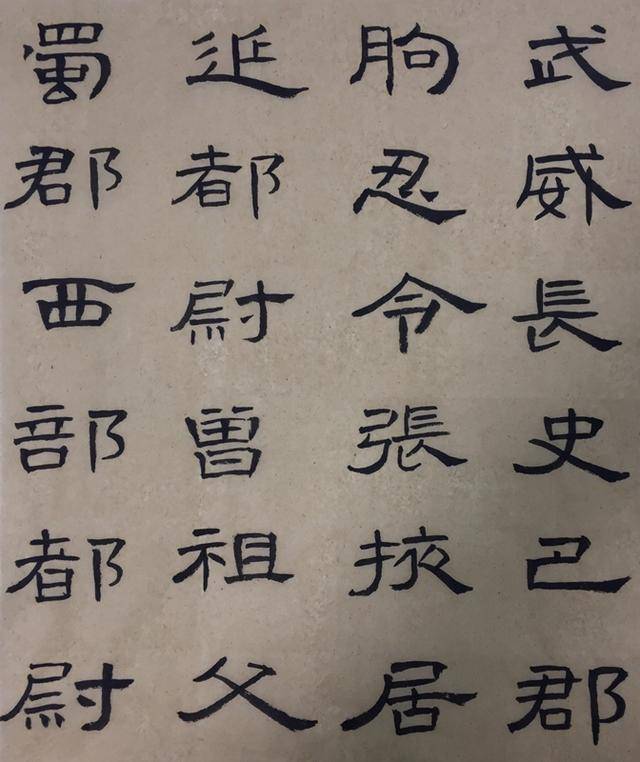 武威長史巴郡
朐忍令張掖居
延都尉曾祖父
蜀郡西部都尉